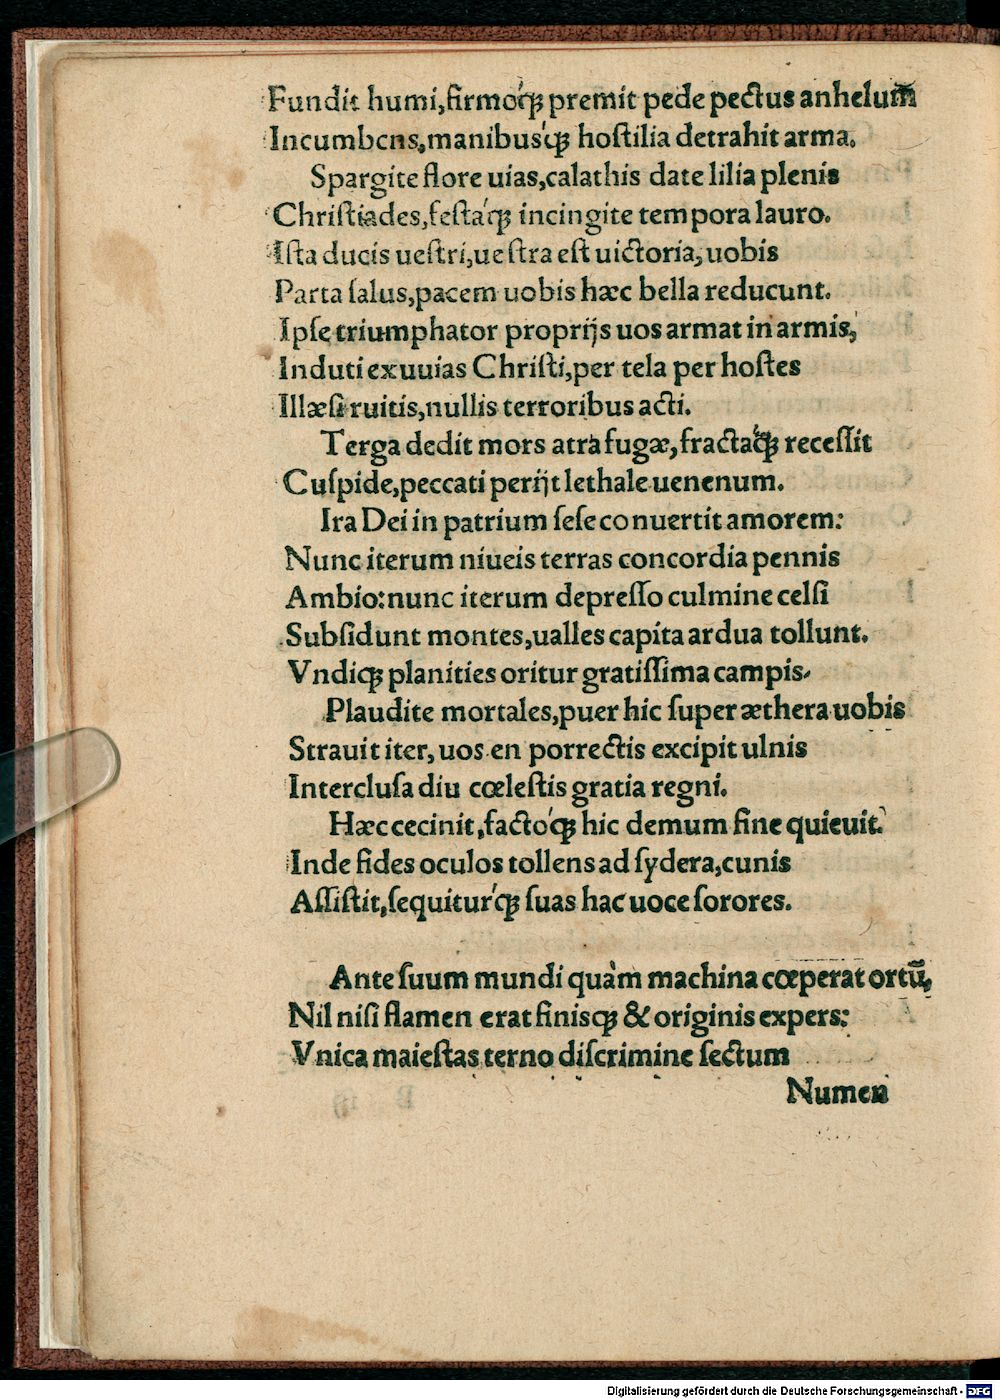 Fundit humi,firmo'qꝫ premit pede pectus anhelum
Incumbens,manibus'qꝫ hoſtilia detrahit arma.
Spargite flore uias,calathis date lilia plenis
Chriſtiades,feſta'qꝫ incingite tempora lauro.
Iſta ducis ueſtri,ueſtra eſt uictoria,uobis
Parta ſalus,pacem uobis hæc bella reducunt.
Ipſe triumphator proprijs uos armat in armis,
Induti exuuias Chriſti,per tela per hoſtes
Illæſi ruitis,nullis terroribus acti.
Terga dedit mors atra fugæ,fracta'qꝫ receſſit
Cuſpide,peccati perijt lethale uenenum.
Ira Dei in patrium ſeſe conuertit amorem:
Nunc iterum niueis terras concordia pennis
Ambio:nunc iterum depreſſo culmine celſi
Subſidunt montes,ualles capita ardua tollunt.
Vndiqꝫ planities oritur gratiſſima campis.
Plaudite mortales,puer hic ſuper æthera uobis
Strauit iter,uos en porrectis excipit ulnis
Intercluſa diu cœleſtis gratia regni.
Hæc cecinit,facto'qꝫ hic demum fine quieuit.
Inde fides oculos tollens ad ſydera,cunis
Aſſiſtit,ſequitur'qꝫ ſuas hac uoce ſorores.
Ante ſuum mundi quàm machina cœperat ortū,
Nil niſi flamen erat finisqꝫ & originis expers:
Vnica maieſtas terno diſcrimine ſectum
Numen
Digitalisierung gefördert durch die Deutsche Forschungsgemeinschaft - DFG